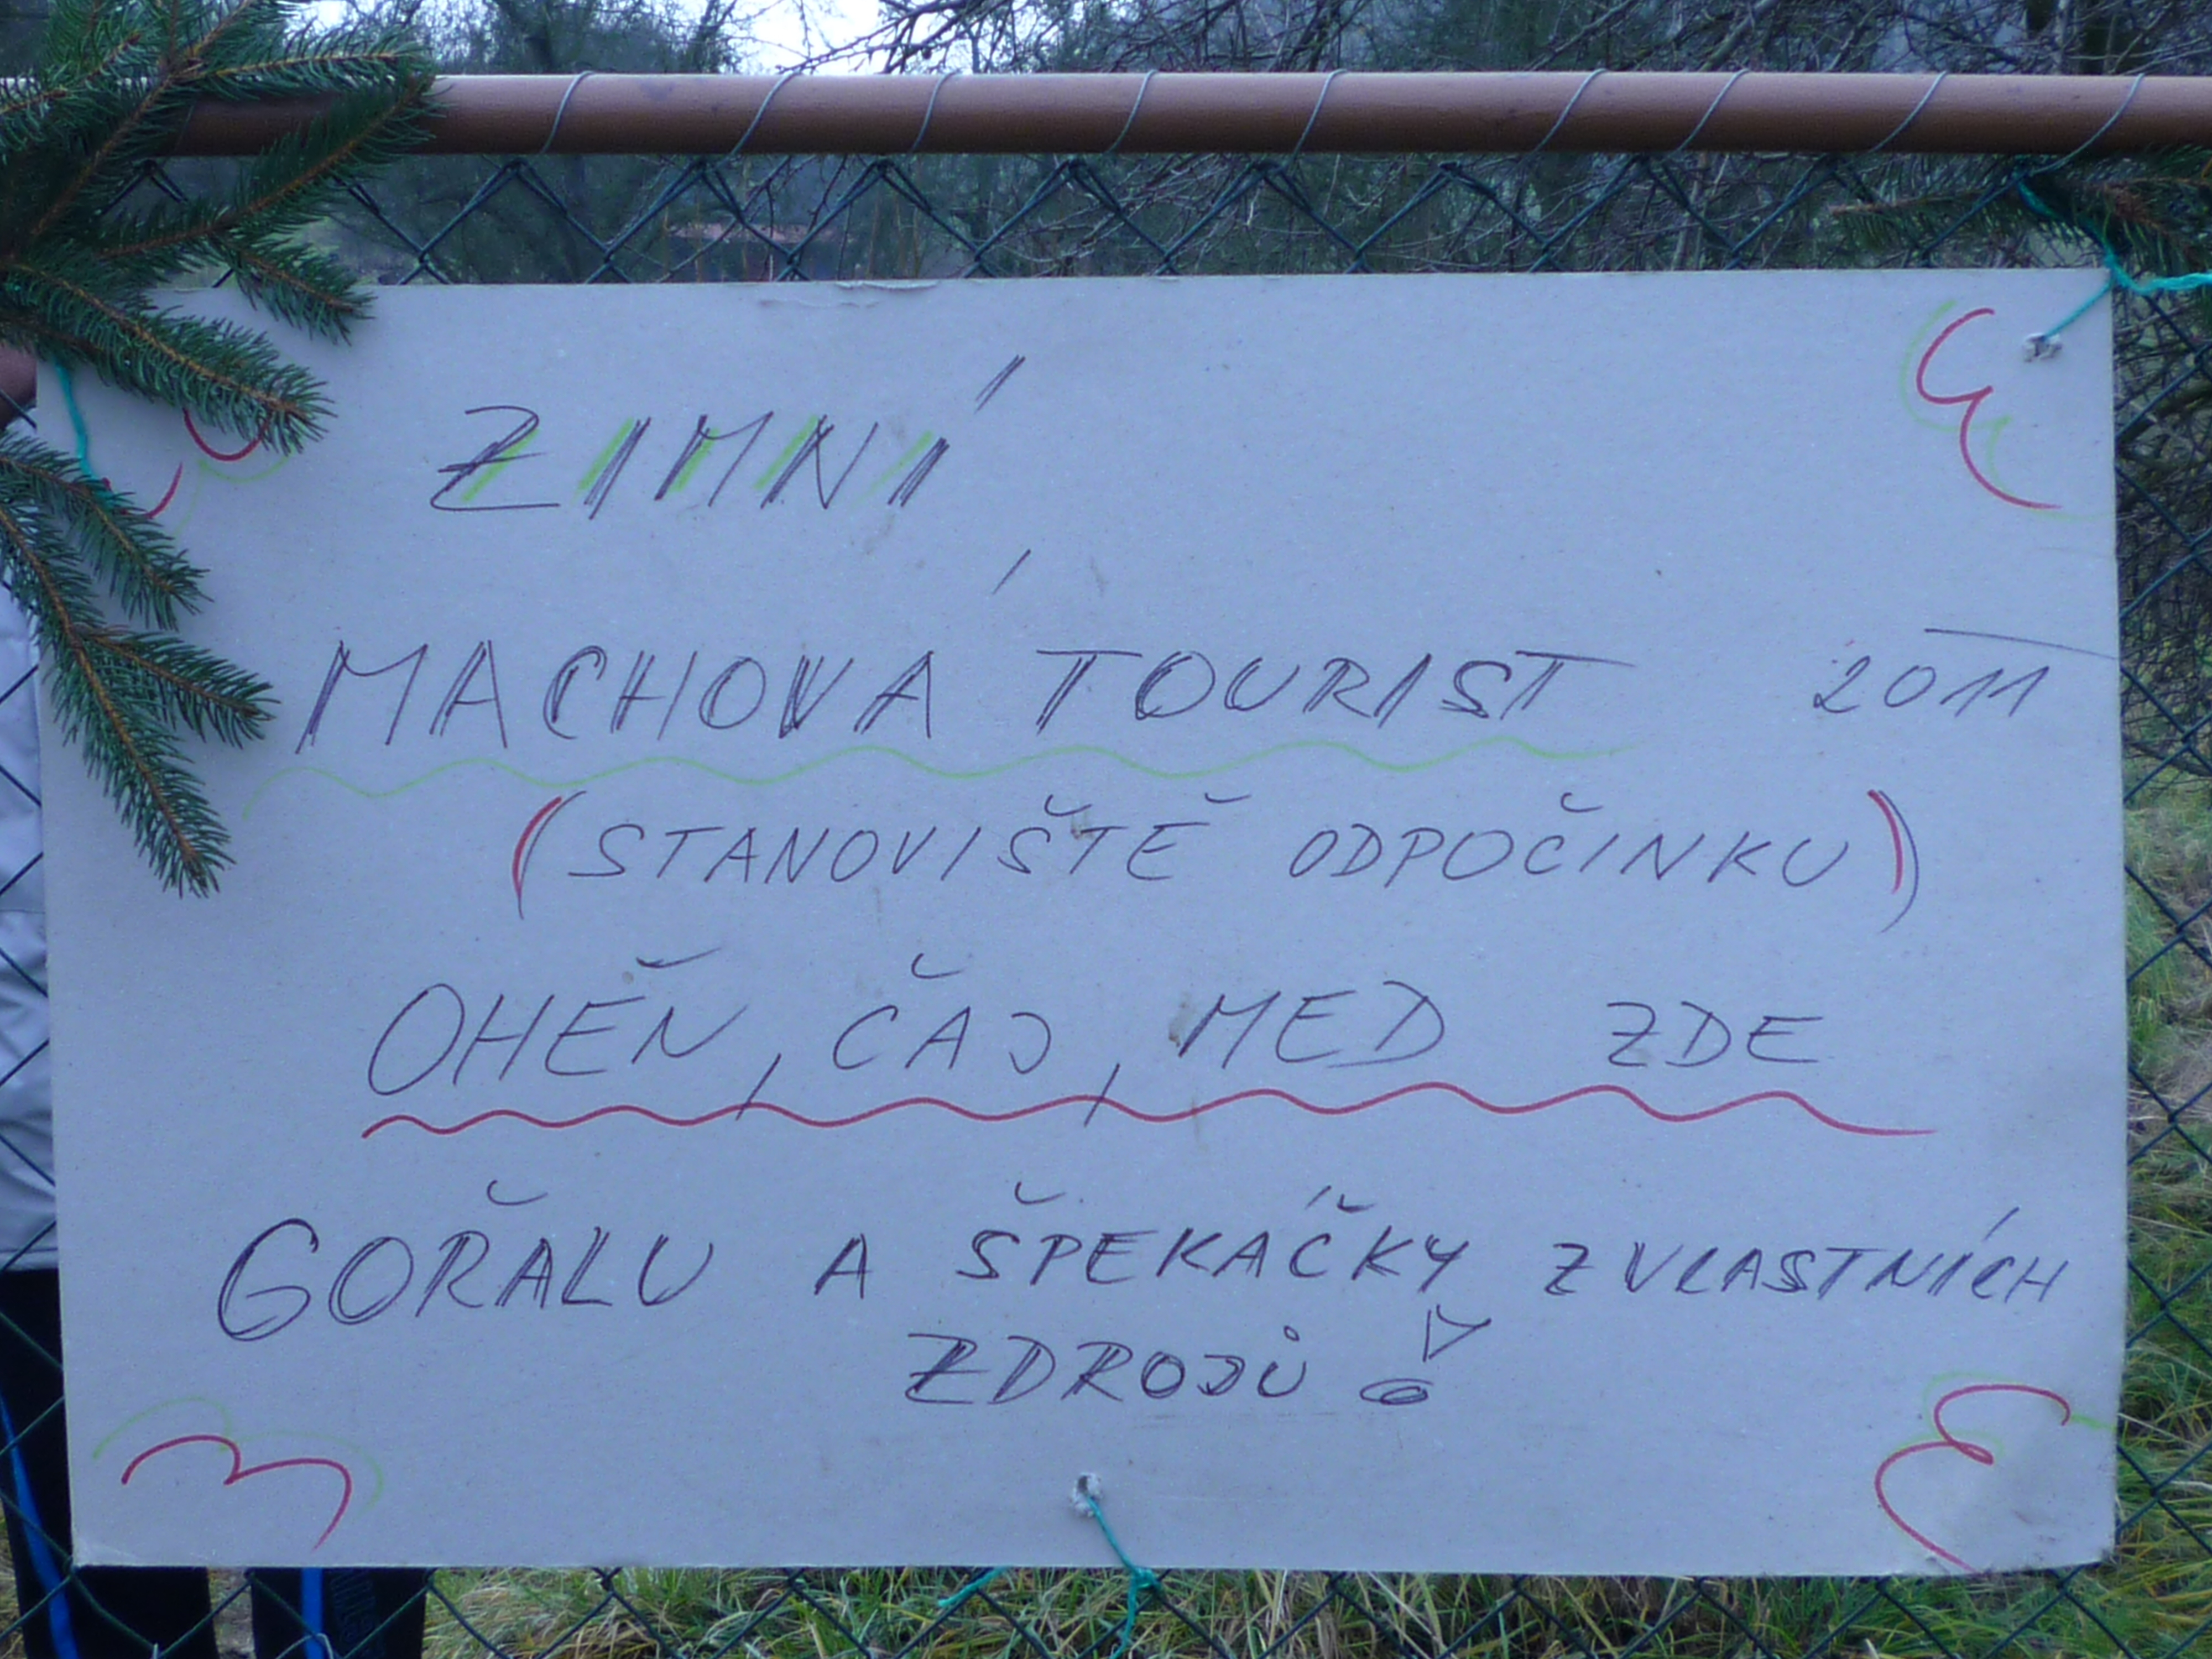 ZIMNÍ
MACHOVÁ TOURIST 2011
(STANOVIŠTĚ ODPOČINKU)
OHEŇ, ČAJ, MED ZDE
GOŘALU A ŠPEKÁČKY Z VLASTNÍCH
ZDROJŮ!